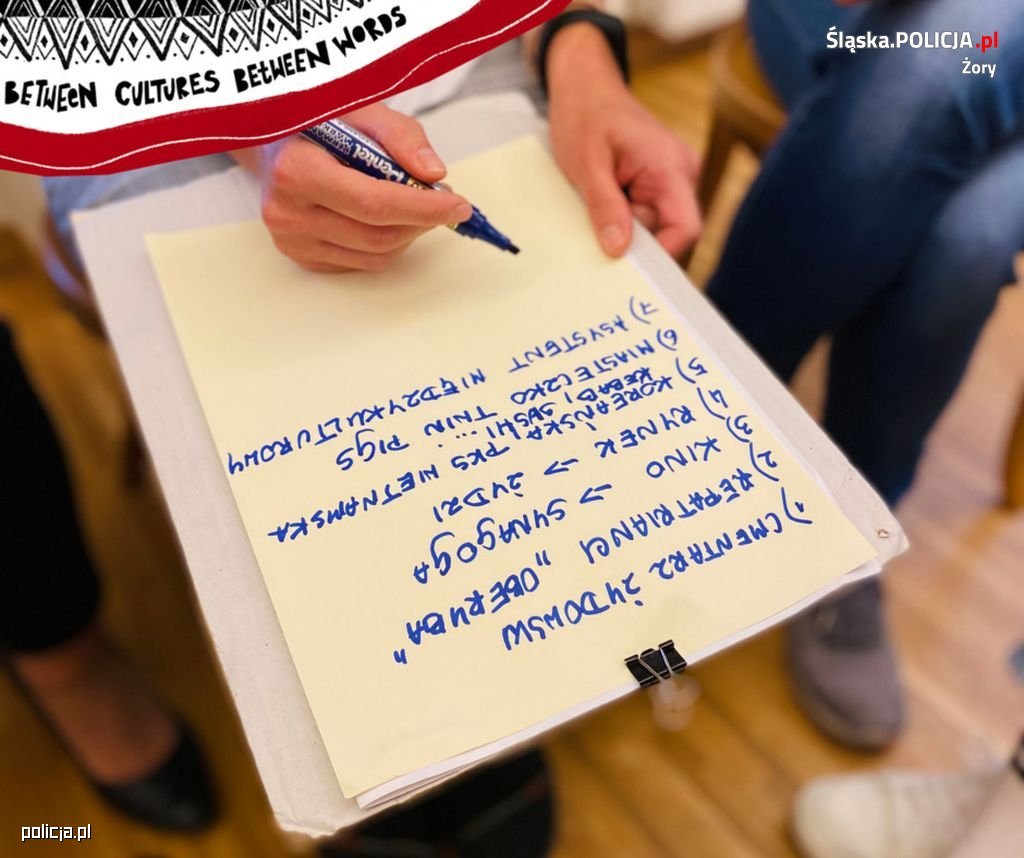 BETWEEN CULTURES BETWEEN WORDS
Śląska.POLICJA.pl
Żory
Pentel
1) CMENTARZ ŻYDOWSW
2) REPATRIANCI „OBERYBA"
3) KINO → SYNAGOGA
4) RYNEK → ŻYDZI
5) KOREAŃSKA PKS WIETNAMSKA
KEBABI, SUSHI...
6) MIASTECZKO TWIN PIGS
7) ASYSTENT MIĘDZYKULTUROWY
policja.pl